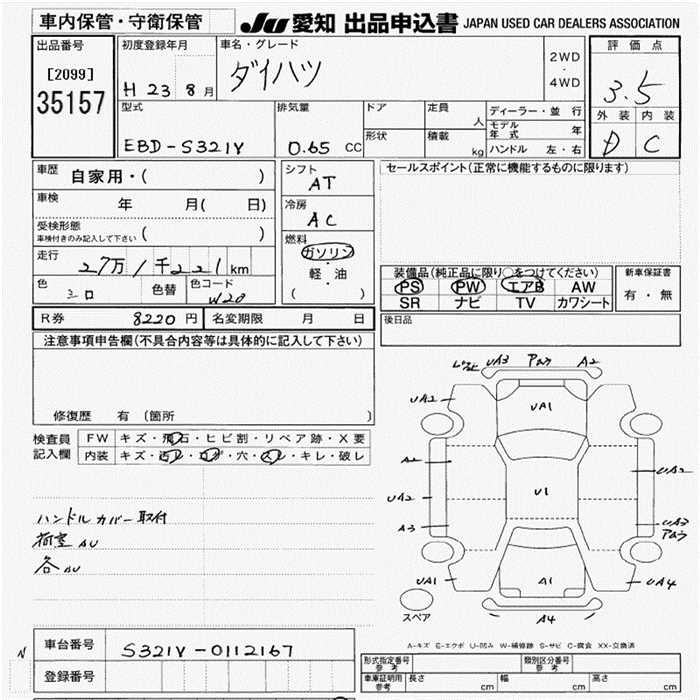 車内保管・守衛保管
JU 愛知 出品申込書 JAPAN USED CAR DEALERS ASSOCIATION
出品番号
[2099]
35157
初度登録年月
H 23 年 8 月
車名・グレード
ダイハツ
2WD
・
4WD
評価点
3.5
外装 内装
D C
型式
EBD-S321V
排気量
0.65 CC
ドア
定員
人
形状
積載
kg
ディーラー・並行
モデル年式 年
ハンドル 左・右
車歴
自家用・( )
車検
年 月( 日)
受検形態
車検付きのみ記入して下さい ( )
走行
27万1千221km
色
シロ
色替
色コード
W20
シフト
AT
冷房
AC
燃料
ガソリン
・
軽・油
( )
セールスポイント(正常に機能するものに限ります)
装備品(純正品に限り○をつけてください)
PS PW エアB AW
SR ナビ TV カワシート
新車保証書
有・無
R券 8220 円
名変期限 月 日
後日品
注意事項申告欄(不具合内容等は具体的に記入して下さい)
修復歴 有 〔箇所 〕
検査員記入欄
FW キズ・飛石・ヒビ割・リペア跡・X要
内装 キズ・汚レ・コゲ・穴・スレ・キレ・破レ
ハンドルカバー取付
荷室AU
各AU
UA3 A2
UA2 UA1
A2 UA2
UA2 U1
A3 UA3
UA1 A1 UA4
スペア
A4
A-キズ E-エクボ U-凹み W-補修跡 S-サビ C-腐食 XX-交換済
N
車台番号
S321V-0112167
登録番号
形式指定番号
参考
類別区分番号
参考
車庫証明用
参考
長さ cm
幅 cm
高さ cm